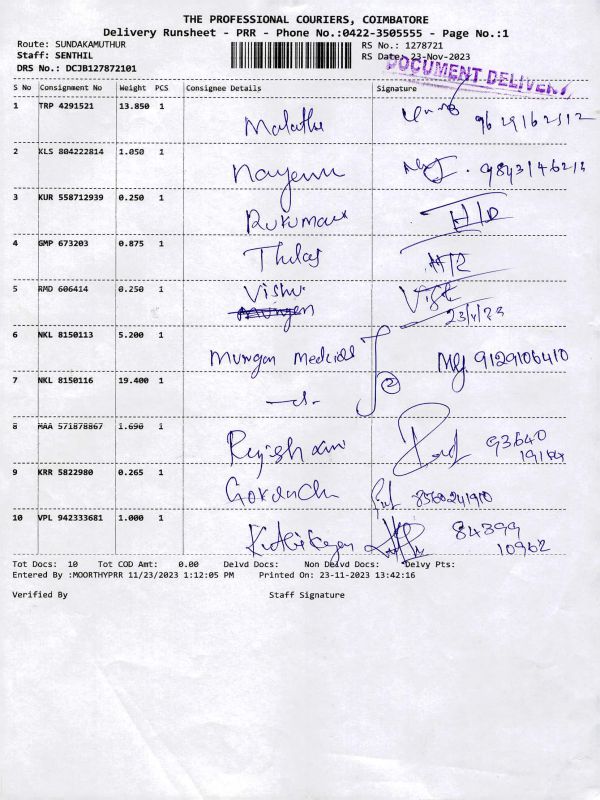 THE PROFESSIONAL COURIERS, COIMBATORE
Delivery Runsheet - PRR - Phone No.:0422-3505555 - Page No.:1
Route: SUNDAKAMUTHUR RS No.: 1278721
Staff: SENTHIL RS Date: 23-Nov-2023
DRS No.: DCJB127872101 DOCUMENT DELIVERY
S No Consignment No Weight PCS Consignee Details Signature
1 TRP 4291521 13.850 1
Malathi
2 KLS 804222814 1.050 1
3 KUR 558712939 0.250 1
4 GMP 673203 0.875 1
Thulas
5 RMD 606414 0.250 1 Vishu
23/11/23
6 NKL 8150113 5.200 1
Murugan Medicals 9129106410
7 NKL 8150116 19.400 1
2
8 MAA 571878867 1.690 1
93640
9 KRR 5822980 0.265 1
8560241910
10 VPL 942333681 1.000 1
84399
10962
Tot Docs: 10 Tot COD Amt: 0.00 Delvd Docs: Non Delvd Docs: Delvy Pts:
Entered By :MOORTHYPRR 11/23/2023 1:12:05 PM Printed On: 23-11-2023 13:42:16
Verified By Staff Signature